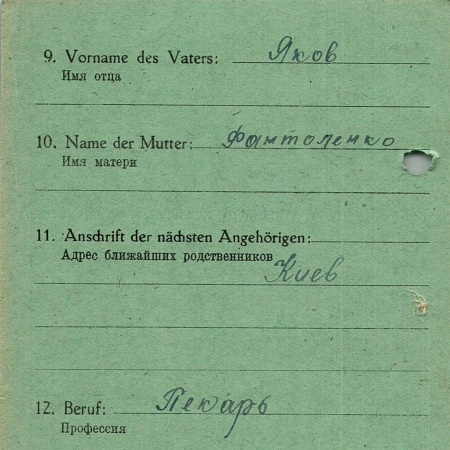 9. Vorname des Vaters: Яков
Имя отца
10. Name der Mutter: Фантоленко
Имя матери
11. Anschrift der nächsten Angehörigen:
Адрес ближайших родственников Киев
12. Beruf: Пекарь
Профессия